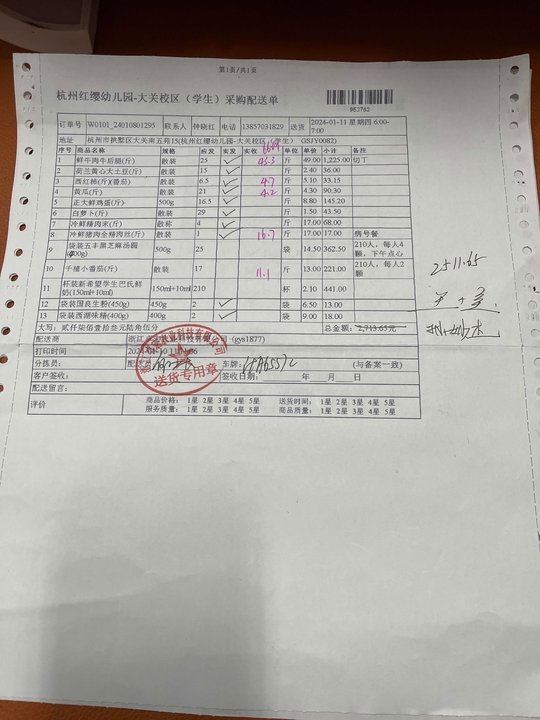 第1页/共1页
杭州红缨幼儿园-大关校区（学生）采购配送单
982762
订单号 W0101_24010801295 联系人 钟晓红 电话 13857031829 送货 2024-01-11 星期四 6:00-7:00
地址 杭州市拱墅区大关南五苑15(杭州红缨幼儿园-大关校区（学生）GSJY0082)
序号 商品名称 规格 应发 实发 实收 单位 单价 小计 备注
1 鲜牛肉牛后腿(斤) 散装 25 斤 49.00 1,225.00 切丁
2 荷兰黄心大土豆(斤) 散装 15 斤 2.40 36.00
3 西红柿(斤)(番茄) 散装 6.5 4.7 斤 5.10 33.15
4 黄瓜(斤) 散装 21 4.2 斤 4.30 90.30
5 正大鲜鸡蛋(斤) 500g 16.5 斤 8.80 145.20
6 白萝卜(斤) 散装 29 斤 1.50 43.50
7 冷鲜精肉末(斤) 散称 4 斤 17.00 68.00
8 冷鲜猪肉全精肉丝(斤) 散装 1 16.7 斤 17.00 17.00 病号餐
9 袋装五丰黑芝麻汤圆 500g 25 袋 14.50 362.50 210人，每人4颗，下午点心
10 千禧小番茄(斤) 散装 17 11.1 斤 13.00 221.00 210人，每人2颗
11 杯装新希望学生巴氏鲜奶(150ml+10ml) 150ml+10ml 210 杯 2.10 441.00
12 袋装国良生粉(450g) 450g 2 袋 6.50 13.00
13 袋装西湖味精(400g) 400g 2 袋 9.00 18.00
大写：贰仟柒佰壹拾叁元陆角伍分 总金额：2,713.65元
2511.65
配送商 浙江 科技有限公司 (gys1877)
打印时间 2024-01-10 11
分拣员： 配 车牌： (与备案一致)
送货专用章
客户签收： 签收日期： 年 月 日
配送留言：
评价 商品价格： 1星 2星 3星 4星 5星 送货时间： 1星 2星 3星 4星 5星
服务质量： 1星 2星 3星 4星 5星 商品质量： 1星 2星 3星 4星 5星